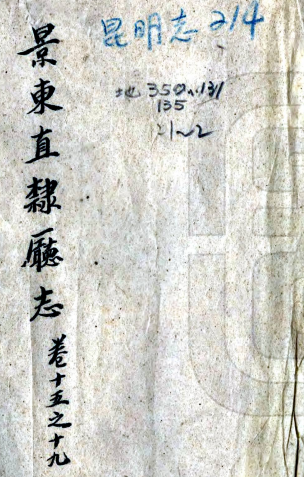 昆明志 214
地 350.131
135
:1~2
景東直隸廳志 卷十五之十九